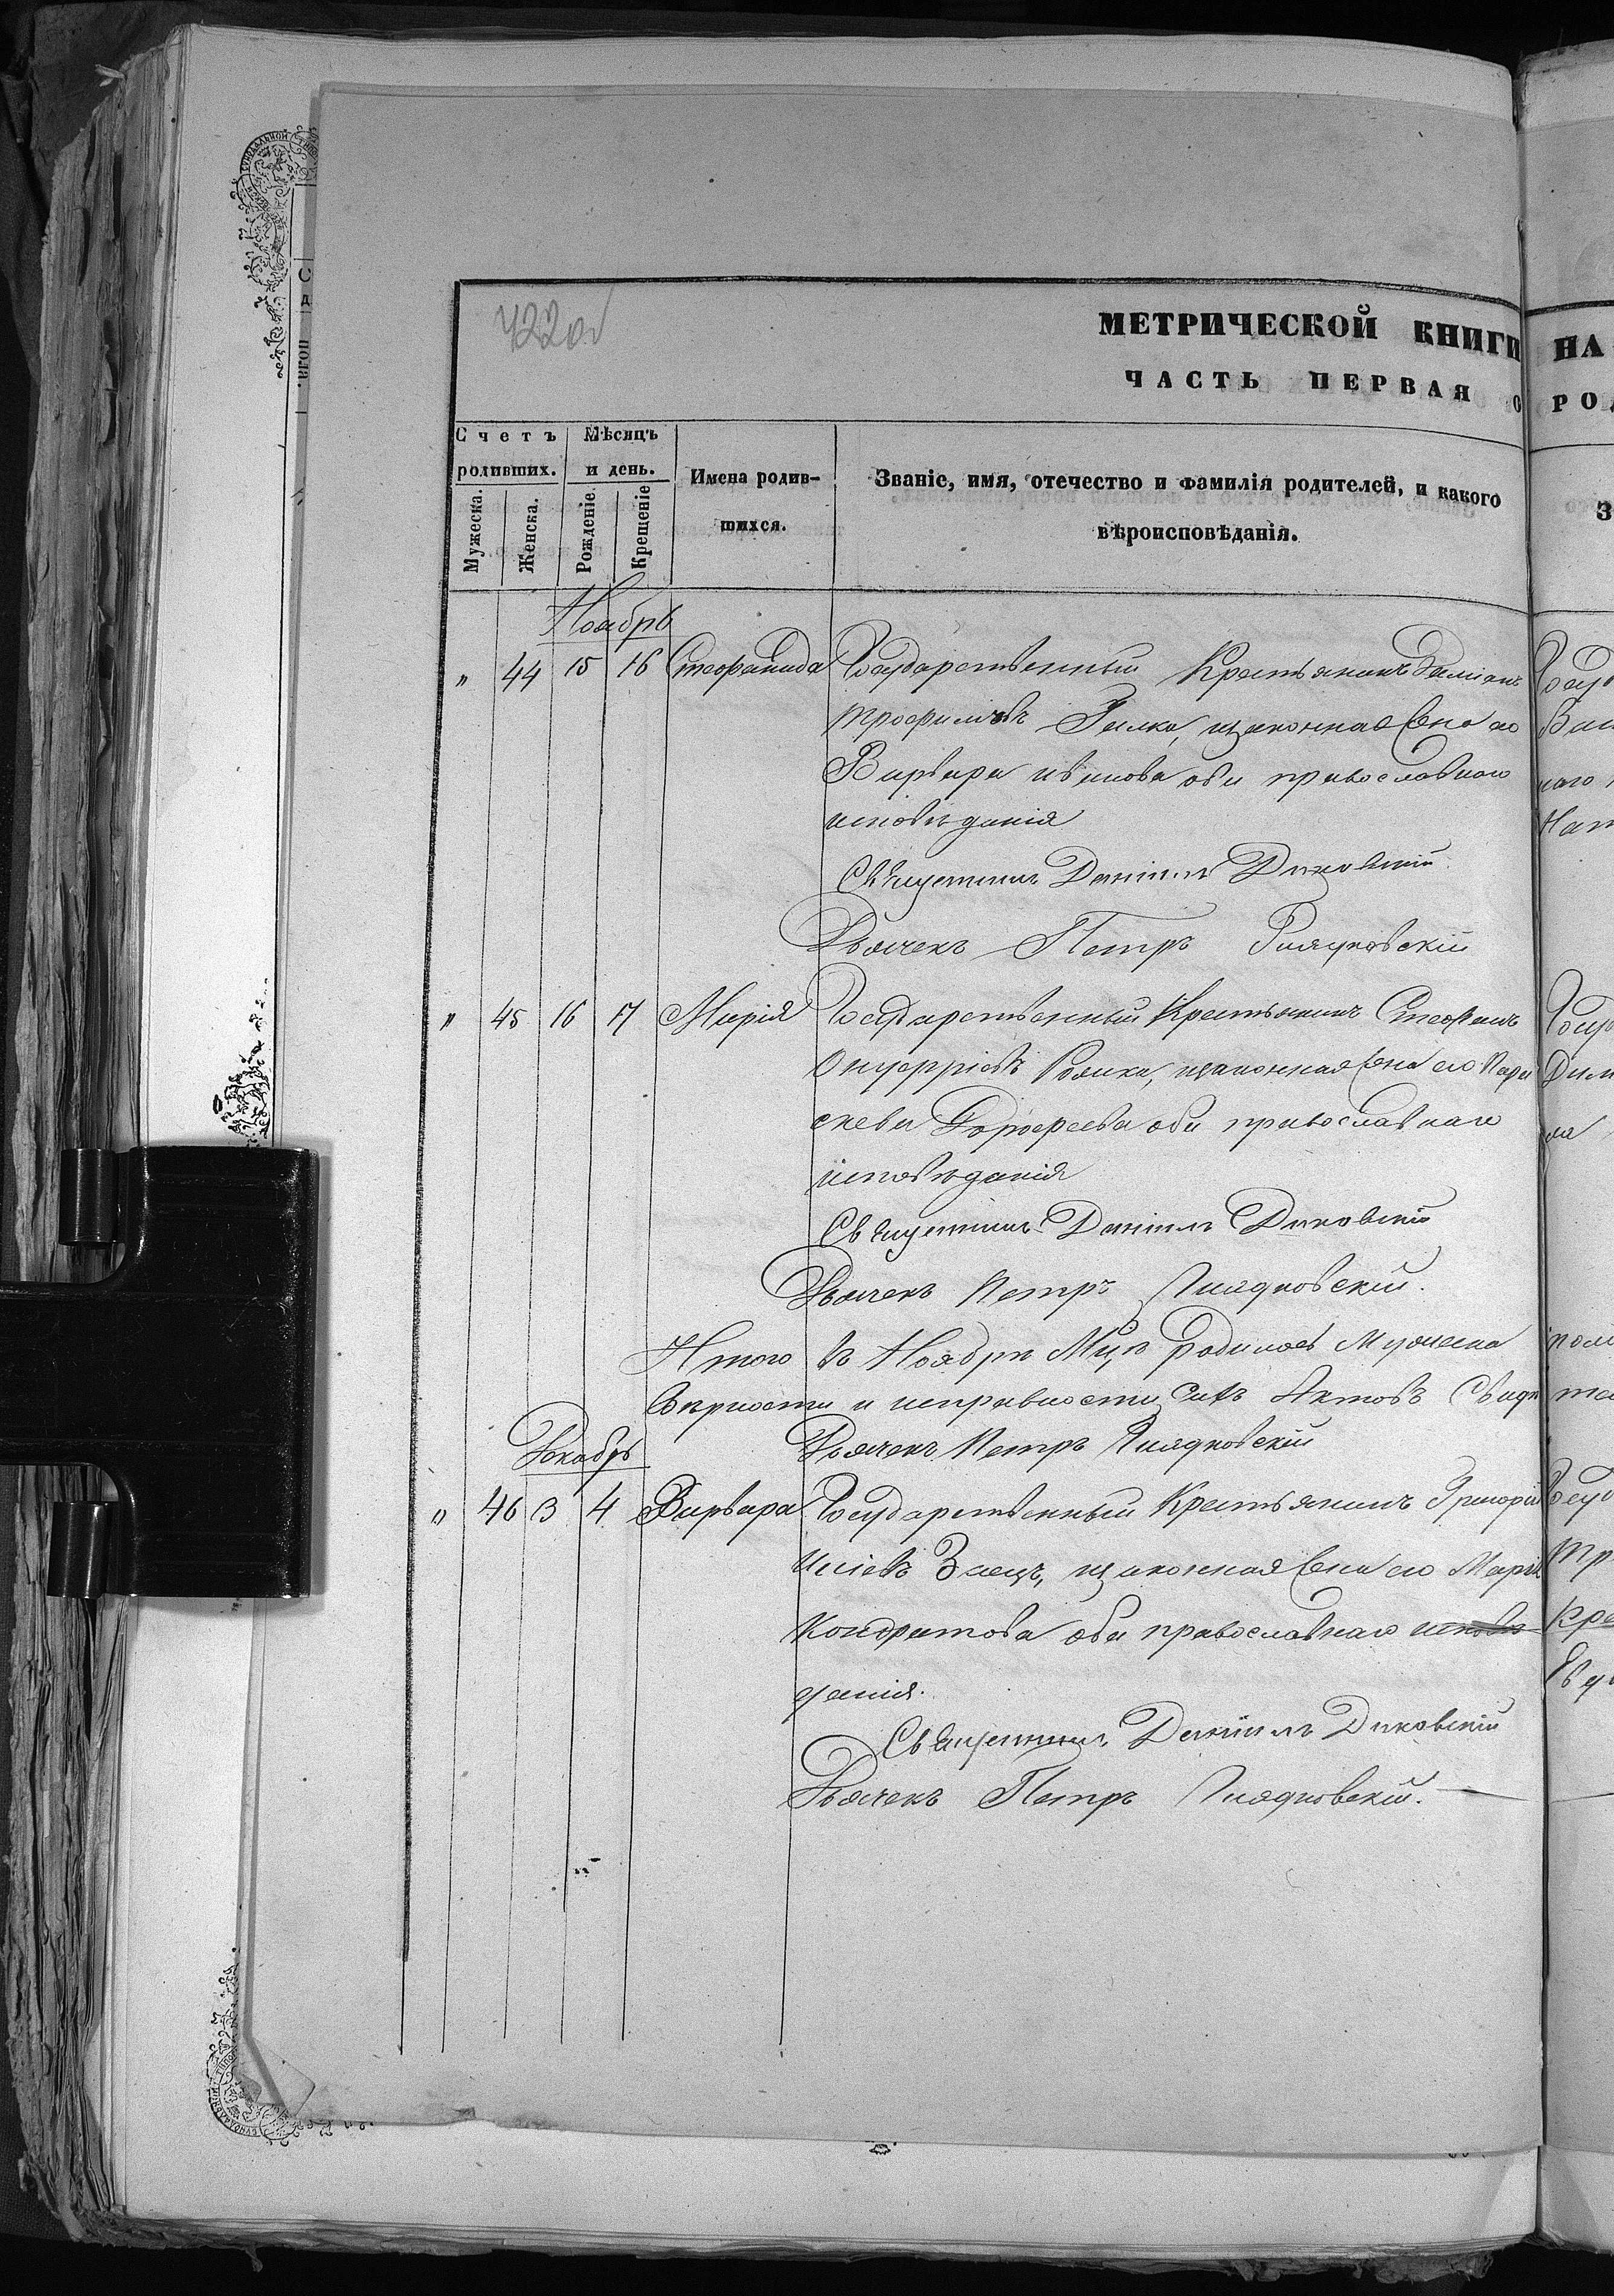 422 об
МЕТРИЧЕСКОЙ КНИГИ
ЧАСТЬ ПЕРВАЯ О
Счетъ родивших.
Мужеска.
Женска.
Мѣсяцъ и день.
Рожденіе.
Крещеніе
Имена родив-
шихся.
Званіе, имя, отечество и фамилія родителей, и какого
вѣроисповѣданія.
НА
РОД
З
Ноябрь
" 44 15 16 Стефанида Государственный Крестьянинъ Даміанъ
Трофимовъ законная жена его
Варвара Иванова оба православнаго
исповѣданія
Священникъ Даніилъ Диковскій
Дьячекъ Петръ
" 45 16 17 Марія Государственный Крестьянинъ Стефанъ
Онуфріевъ законная жена его Пара
скева Дорофеева оба православнаго
исповѣданія
Священникъ Даніилъ Диковскій
Дьячекъ Петръ
Итого въ Ноябрѣ Мцѣ родилось Мужеска
вѣрности и исправности сихъ Актовъ Свидѣ
Дьячекъ Петръ
Декабрь
" 46 3 4 Варвара Государственный Крестьянинъ Григорій
Иліевъ Заецъ, законная жена его Марія
Кондратова оба православнаго исповѣ
данія.
Священникъ Даніилъ Диковскій
Дьячекъ Петръ